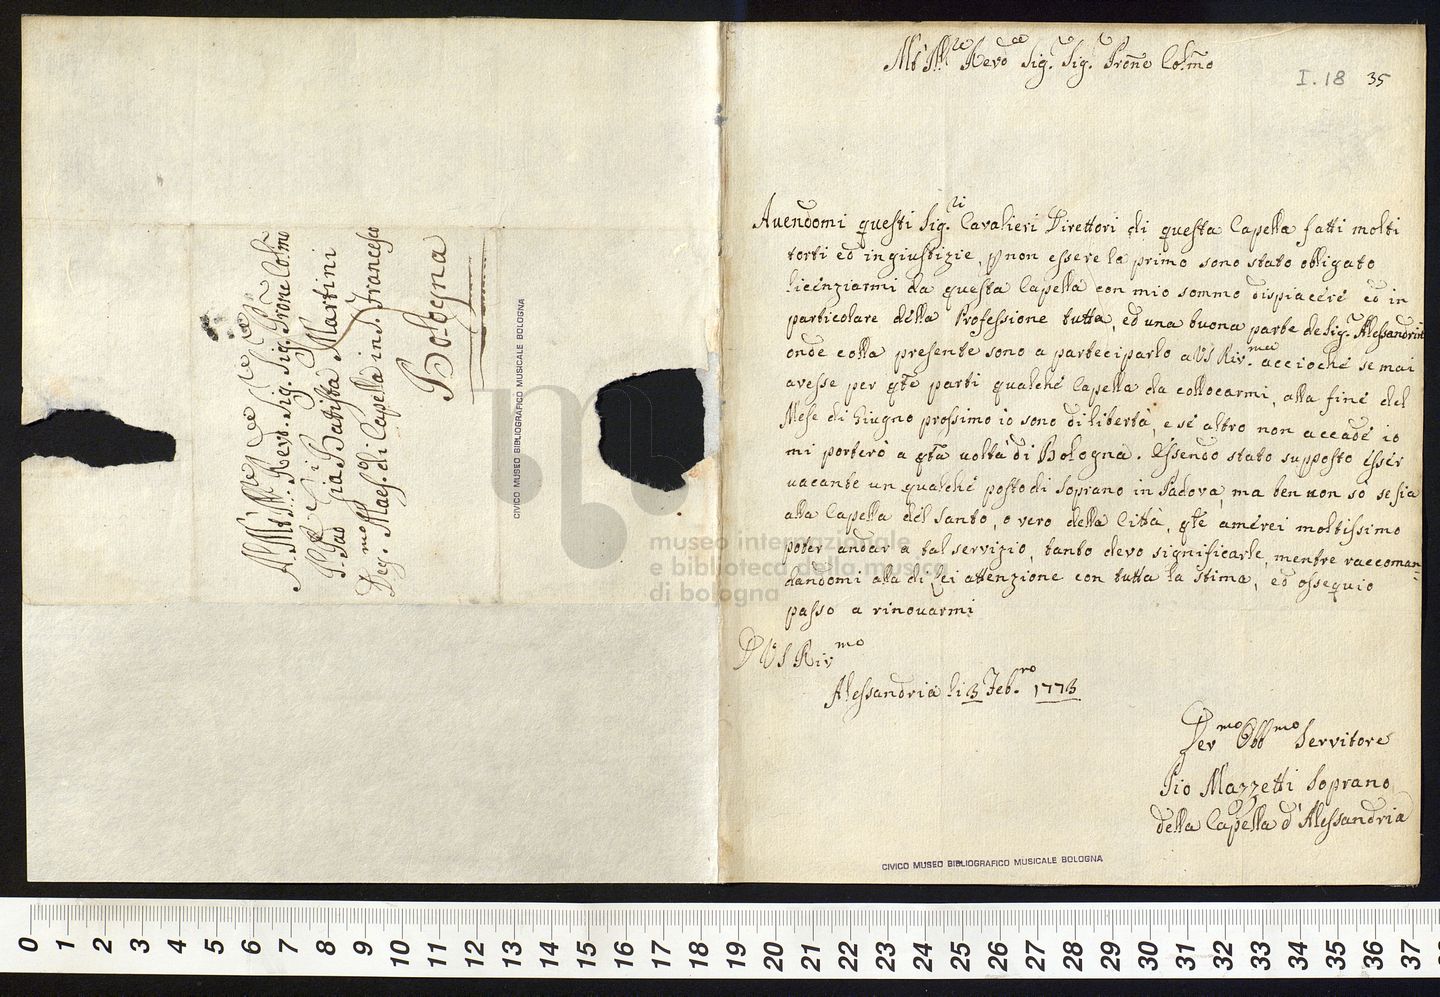 Al M.to Ill.re e M.to Revd. Sig. Sig. Prone Colmo
Il Pad. Gia Batista Martini
Deg.mo Maes. di Capella in S. Francesco
Bologna
CIVICO MUSEO BIBLIOGRAFICO MUSICALE BOLOGNA
I. 18 35
Mto Ill.re Revdo Sig.r Sig.r Prone Colmo
Avendomi questi Sig.ri Cavalieri Direttori di questa Capella fatti molti
torti ed ingiustizie, p non essere la primo sono stato obligato
licenziarmi da questa Capella con mio sommo dispiacere ed in
particolare della Professione tutta, ed una buona parte de Sig.r Alessandrini
onde colla presente sono a parteciparlo a VS Riv.ma acciochè se mai
avesse per qte parti qualche Capella da collocarmi, alla fine del
Mese di Giugno prossimo io sono di libertà, e se altro non accade io
mi porterò a qta volta di Bologna. Essendo stato supposto esser
vacante un qualche posto di soprano in Padova, ma ben non so se sia
alla Capella del Santo, o vero della Città, qte amerei moltissimo
poter andar a tal servizio, tanto devo significarle, mentre raccoman=
dandomi alla di Lei attenzione con tutta la stima, ed ossequio
passo a rinovarmi
D VS Riv.mo
Alessandria li 3 Feb.ro 1773
Dev.mo Obb.mo Servitore
Pio Mazzetti Soprano
della Capella d'Alessandria
CIVICO MUSEO BIBLIOGRAFICO MUSICALE BOLOGNA
museo internazionale
e biblioteca della musica
di bologna
0 1 2 3 4 5 6 7 8 9 10 11 12 13 14 15 16 17 18 19 20 21 22 23 24 25 26 27 28 29 30 31 32 33 34 35 36 37